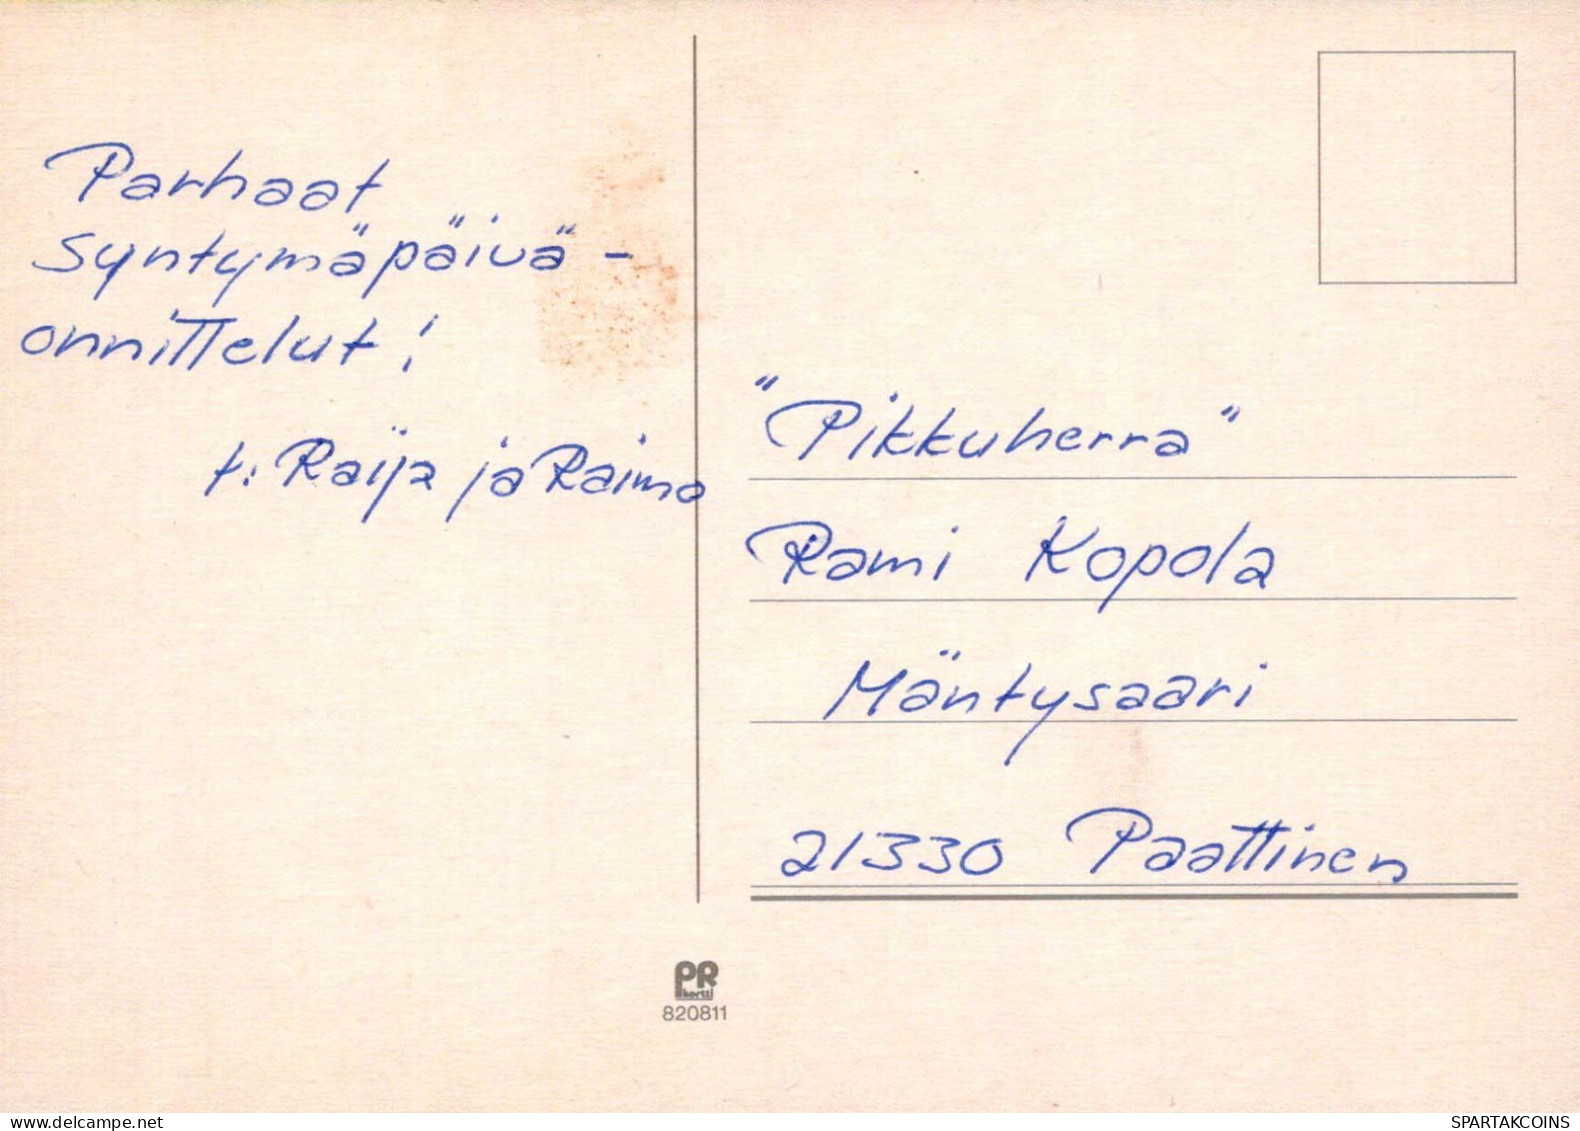 Parhaat
syntymäpäivä-
onnittelut!
t: Raija ja Raimo
"Pikkuherra"
Rami Kopola
Mäntysaari
21330 Paattinen
PR
kortti
820811
delcampe.net
SPARTAKCOINS